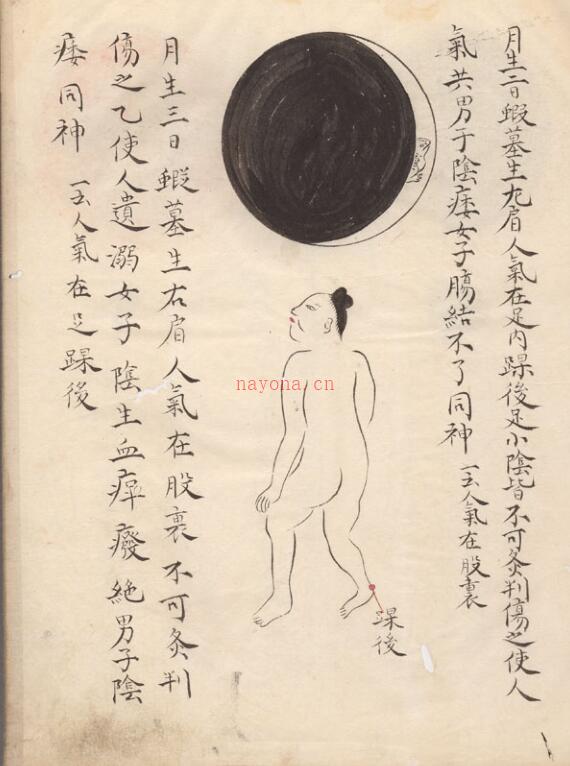 月生二日蝦墓生九肩人氣在足内踝後足小陰皆不可灸判傷之使人
氣共男子陰痿女子腸結不了同神 一云人氣在股裏
踝後
nayona.cn
月生三日蝦墓生右肩人氣在股裏不可灸判
傷之乙使人遺溺女子陰生血痺癈絶男子陰
痿同神 一云人氣在足踝後